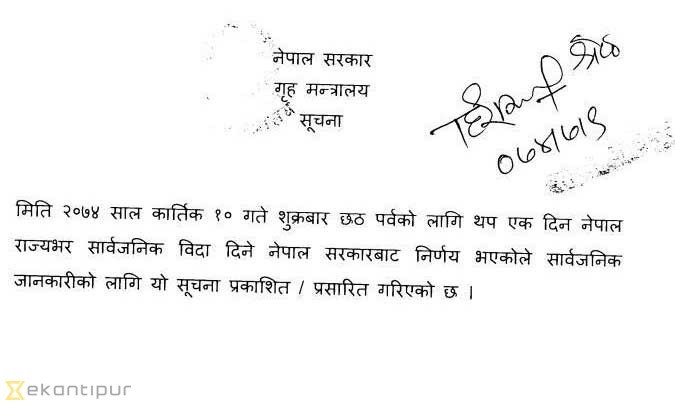 नेपाल सरकार
गृह मन्त्रालय
सूचना
श्रेष्ठ
०७४।७।९
मिति २०७४ साल कार्तिक १० गते शुक्रबार छठ पर्वको लागि थप एक दिन नेपाल
राज्यभर सार्वजनिक विदा दिने नेपाल सरकारबाट निर्णय भएकोले सार्वजनिक
जानकारीको लागि यो सूचना प्रकाशित / प्रसारित गरिएको छ ।
ekantipur